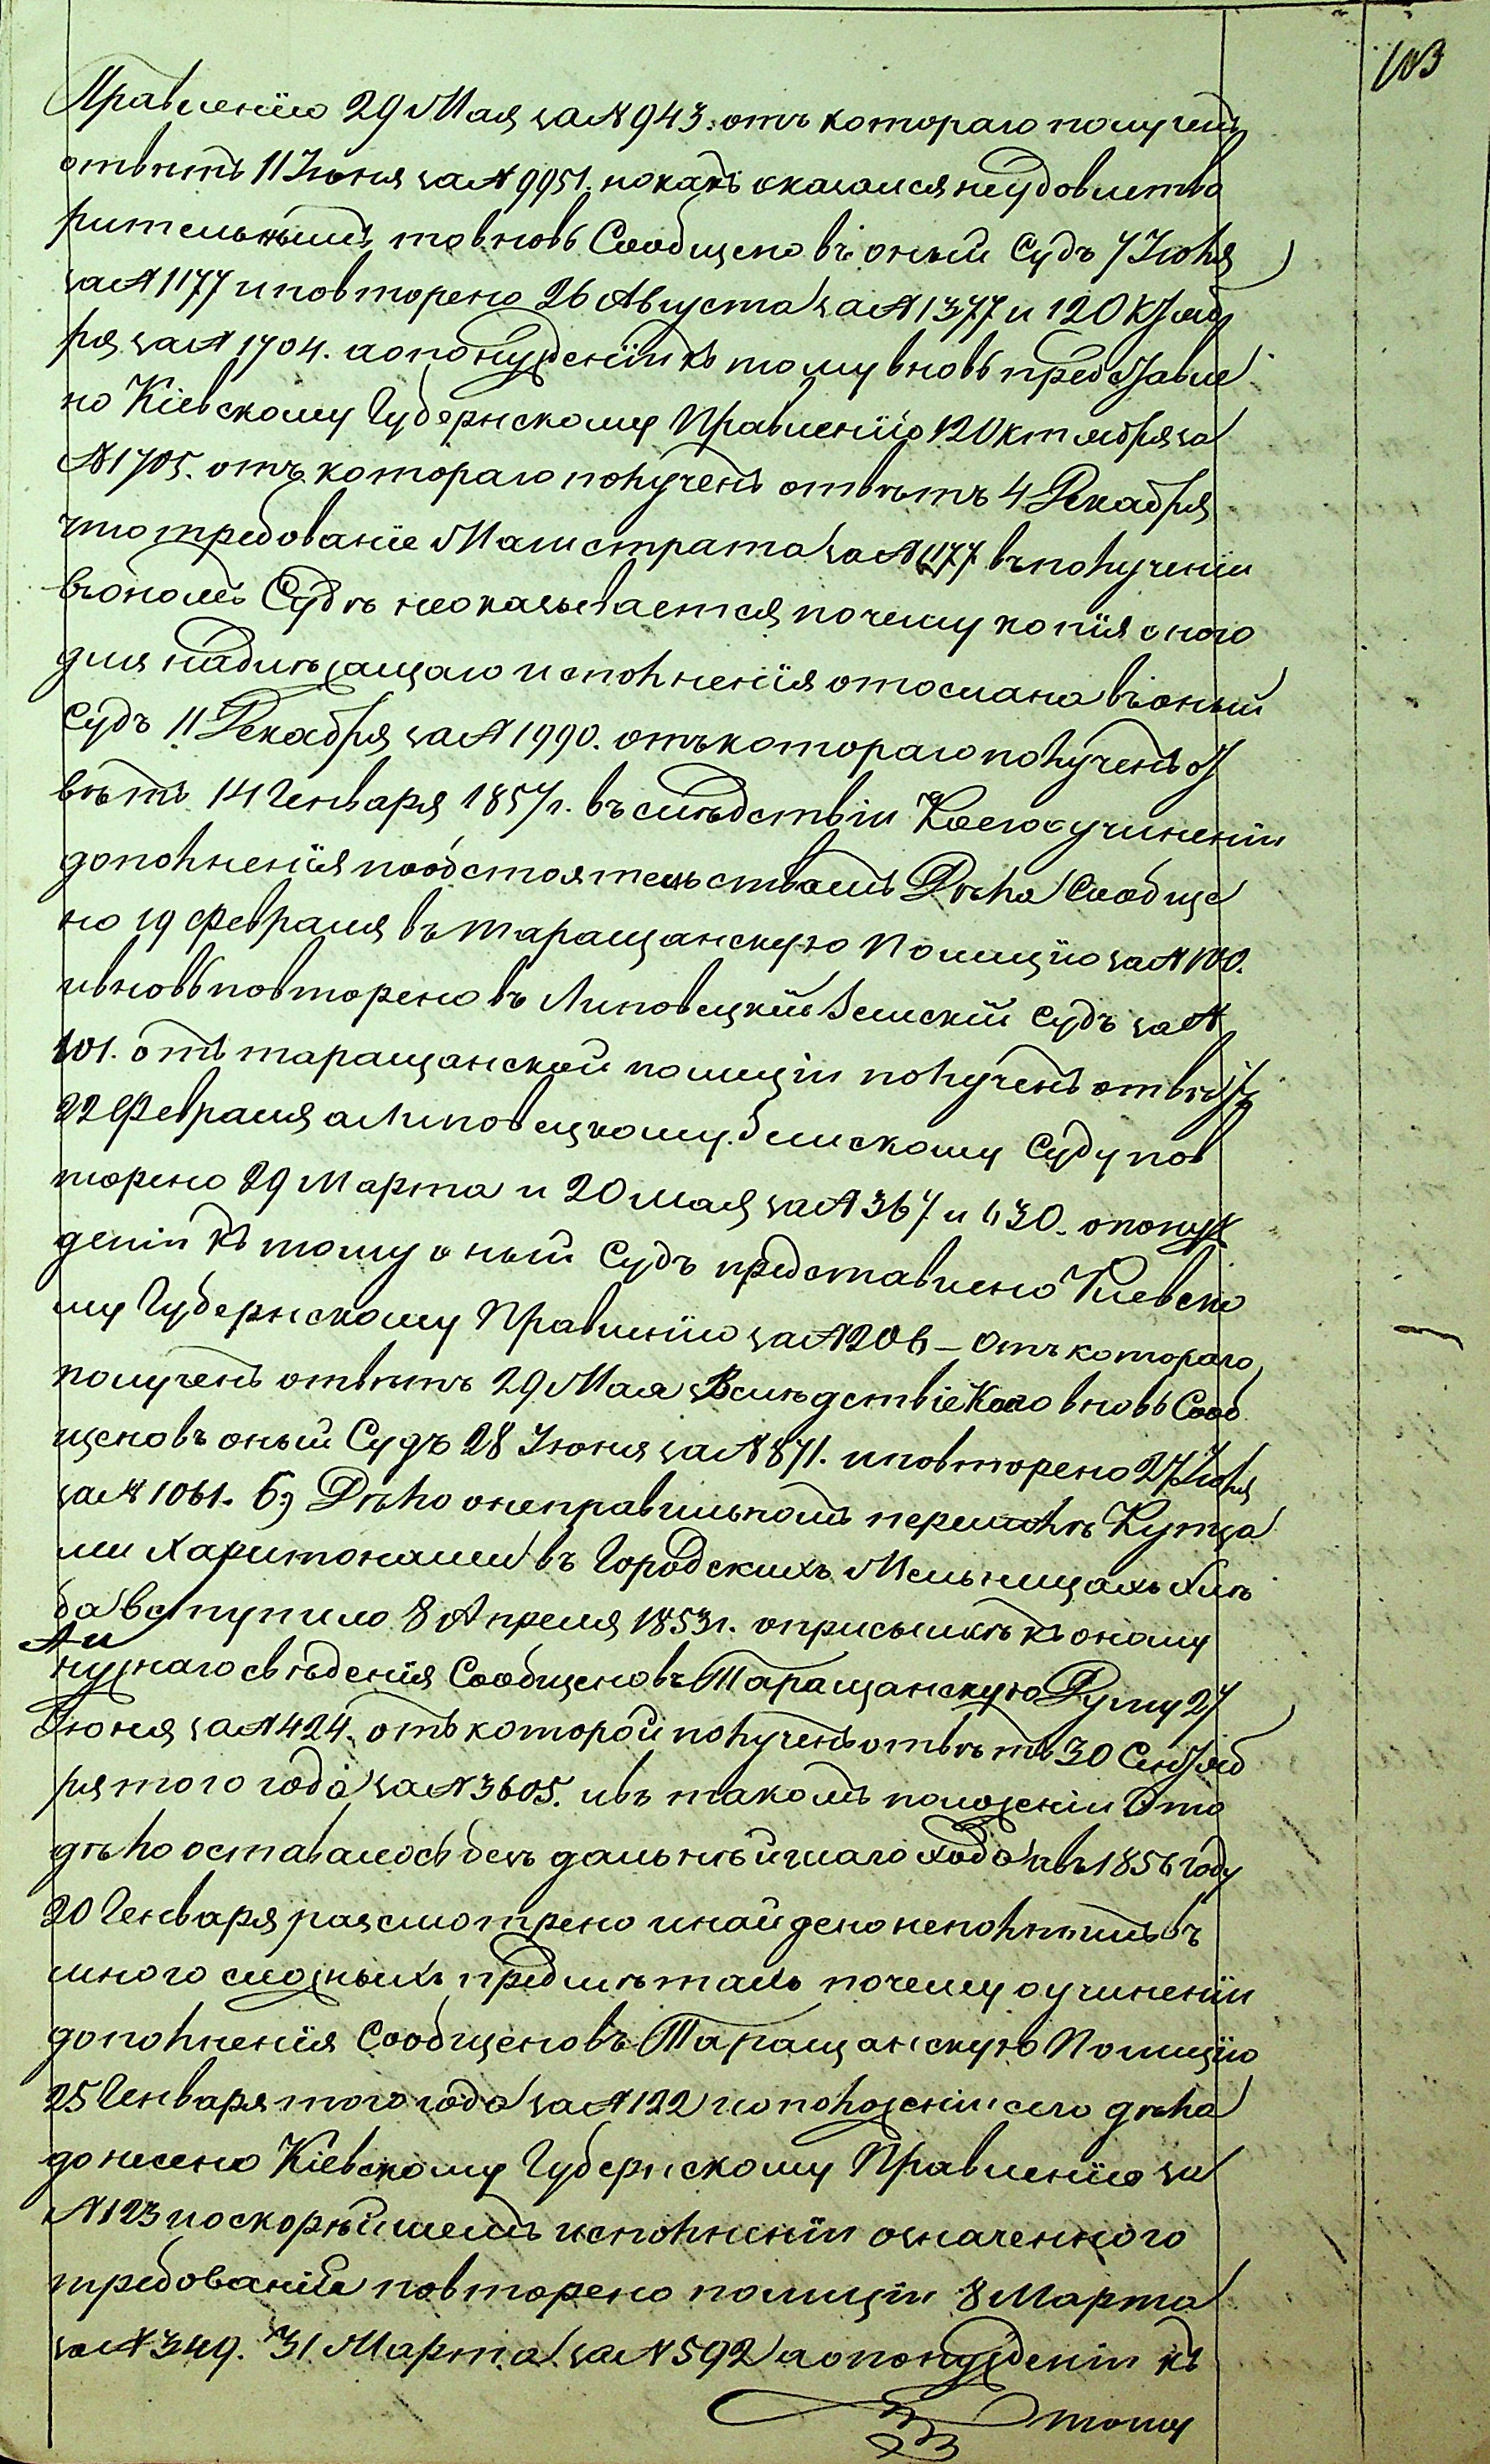 103
Правленію 29 Мая за № 943. отъ котораго полученъ
отвѣтъ 11 Іюня за № 9951. но какъ оказался неудовлетво
рительнымъ, то вновь Сообщено въ оный Судъ 7 Іюля
за № 1177 и повторено 26 Августа за № 1377 и 12 Октяб
ря за № 1704. а о понужденіи къ тому вновь представле
но Кіевскому Губернскому Правленію 12 Октября за
№ 1705. отъ котораго полученъ отвѣтъ 4 Декабря
что требованіе Магистрата за № 1177 въ полученіи
въ ономъ Судѣ неоказывается почему копія оного
для надлѣжащаго исполненія отослана въ оный
Судъ 11 Декабря за № 1990. отъ котораго полученъ от
вѣтъ 14 Генваря 1857 г. въ слѣдствіи Коего о учиненіи
дополненія по обстоятельствамъ Дѣла Сообще
но 19 февраля въ таращанскую Полицію за № 100.
и вновь повторено въ Липовецкій Земскій Судъ за №
101. отъ таращанской полиціи полученъ отвѣтъ
22 Февраля а Липовецкому Земскому Суду пов
торено 29 Марта и 20 мая за № 367 и 630. о понуж
деніи къ тому оный Судъ представлено Киевско
му Губернскому Правленію за № 206 – Отъ котораго
полученъ отвѣтъ 29 Мая Вслѣдствіе Кого вновь Сооб
щено въ оный Судъ 28 Іюня за № 871. и повторено 27 Іюля
за № 1061. 6) Дѣло о неправильномъ перемолѣ Купца
ми Харитонами въ Городскихъ Мельницахъ хлѣ
ба вступило 8 Апреля 1853 г. о присылкѣ къ оному
нужнаго свѣденія Сообщено въ Таращанскую Думу 27
Іюня за № 424. отъ которой полученъ отвѣтъ 30 Сентяб
ря того года за № 3605. и въ такомъ положеніи Это
дѣло оставалось безъ дальнѣйшаго хода и въ 1856 году
20 Генваря разсмотрено и найдено неполнымъ въ
много сложныхъ предмѣтахъ почему о учиненіи
дополненія Сообщено въ Таращанскую Полицію
25 Генваря того года за № 122 и о положеніи сего дѣла
донесено Кіевскому Губернскому Правленію за
№ 123 и о скорѣйшемъ исполненіи означенного
требованія повторено полиціи 8 Марта
за № 349. 31 Марта за № 592 а о понужденіи къ
тому